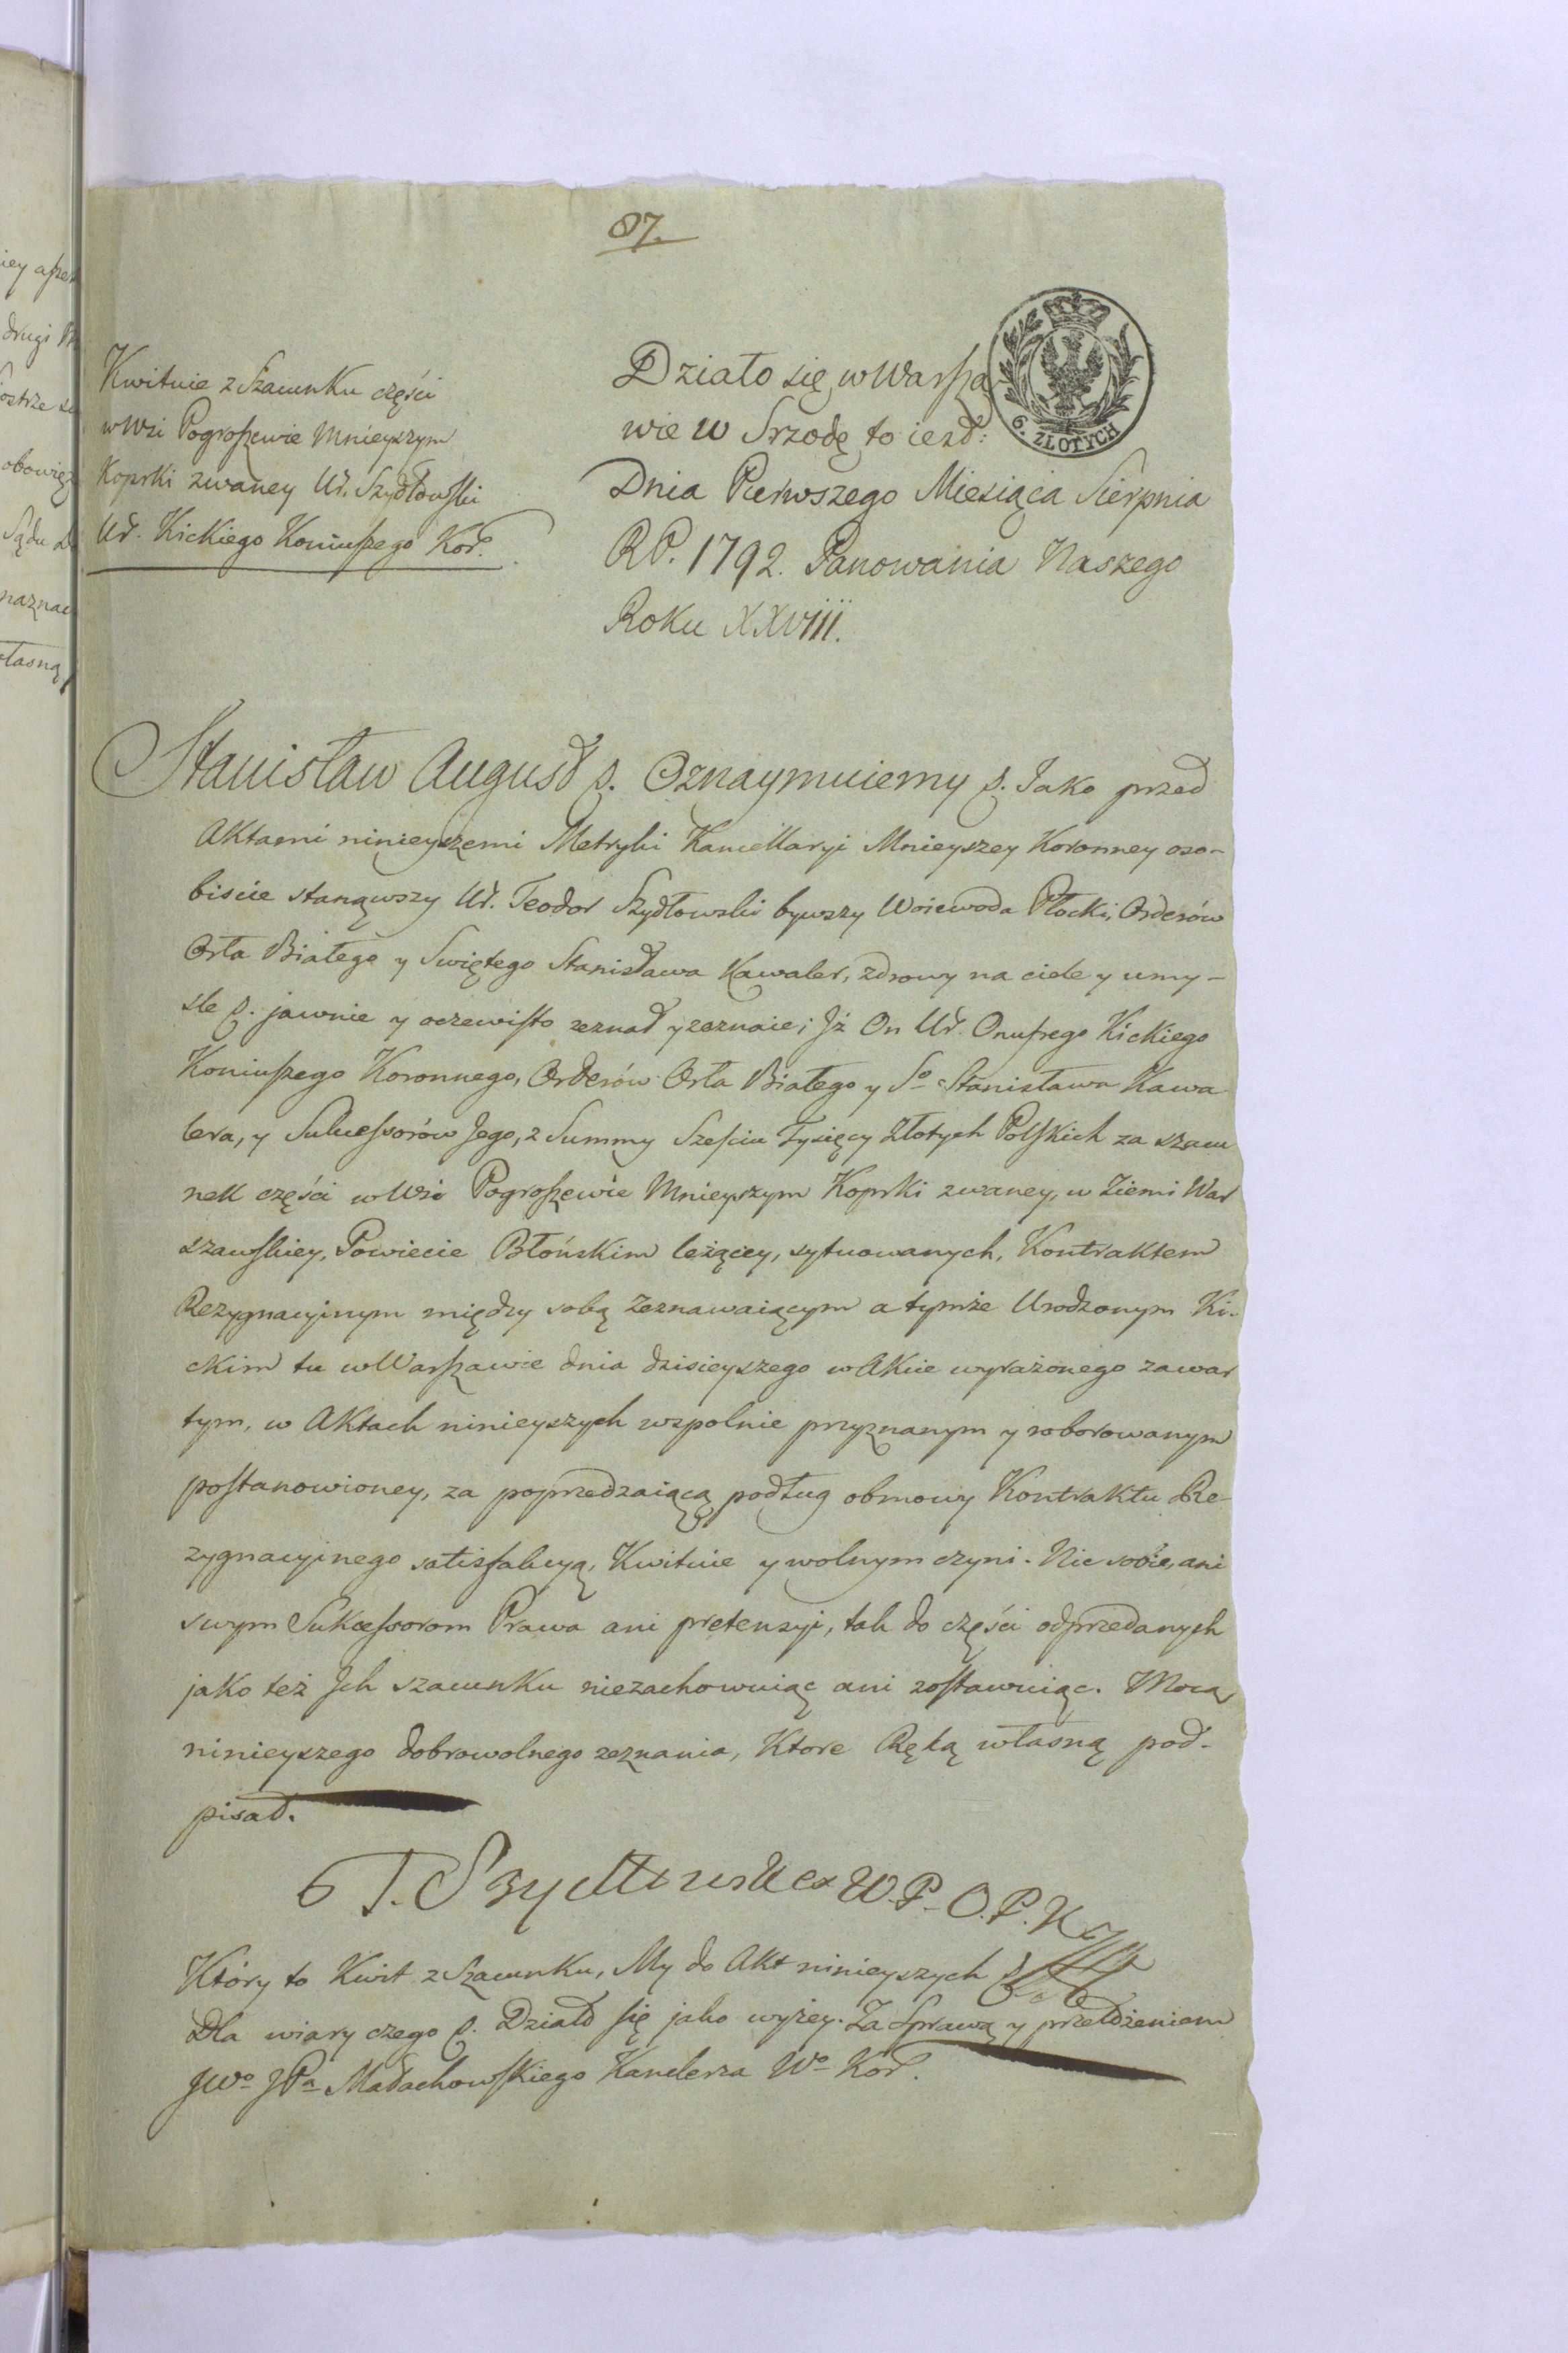 87.
Kwituie z Szacunku części
w Wsi Pogroszewie Mnieyszym
Koprki zwaney Ur. Szydłowski
Ur. Kickiego Koniuszego Kor.
Działo się w Warsza
wie w Srzodę to iest:
Dnia Pierwszego Miesiąca Sierpnia
RP. 1792. Panowania Naszego
Roku XXVIII.
6. ZŁOTYCH
Stanisław August p. Oznaymuiemy p. Jako przed
Aktami ninieyszemi Metryki Kancellaryi Mnieyszey Koronney oso-
biscie stanąwszy Ur. Teodor Szydłowski bywszy Woiewoda Płocki, Orderów
Orła Białego y Swiętego Stanisława Kawaler, zdrowy na ciele y umy-
sle p. jawnie y oczewisto zeznał y zeznaie; Jż On Ur. Onufrego Kickiego
Koniuszego Koronnego, Orderów Orła Białego y So Stanisława Kawa
lera, y Sukcessorów Jego, z Summy Sześciu Tysięcy Złotych Polskich za szacu
nek części w Wsi Pogroszewie Mnieyszym Koprki zwaney, w Ziemi War
szawskiey, Powiecie Błońskim leżącey, sytuowanych, Kontraktem
Rezygnacyinym między sobą Zeznawaiącym a tymże Urodzonym Ki-
ckim tu w Warszawie dnia dzisieyszego w Akcie wyrażonego zawar
tym, w Aktach ninieyszych wspolnie przyznanym y roborowanym
postanowioney, za poprzedzaiącą podług obmowy Kontraktu Re-
zygnacyinego satisfakcyą, Kwituie y wolnym czyni. Nic sobie, ani
swym Sukcessorom Prawa ani pretensyi, tak do części odprzedanych
jako też Jch szacunku niezachowuiąc ani zostawuiąc. Mocą
ninieyszego dobrowolnego zeznania, Ktore Ręką własną pod-
pisał.
T. Szydłowski ex W.P. O.P.K.
Który to Kwit z Szacunku, My do Akt ninieyszych p.
Dla wiary czego p. Dział się jako wyżey. Za Sprawą y przełożeniem
JWo JPa Małachowskiego Kanclerza Wo Kor.